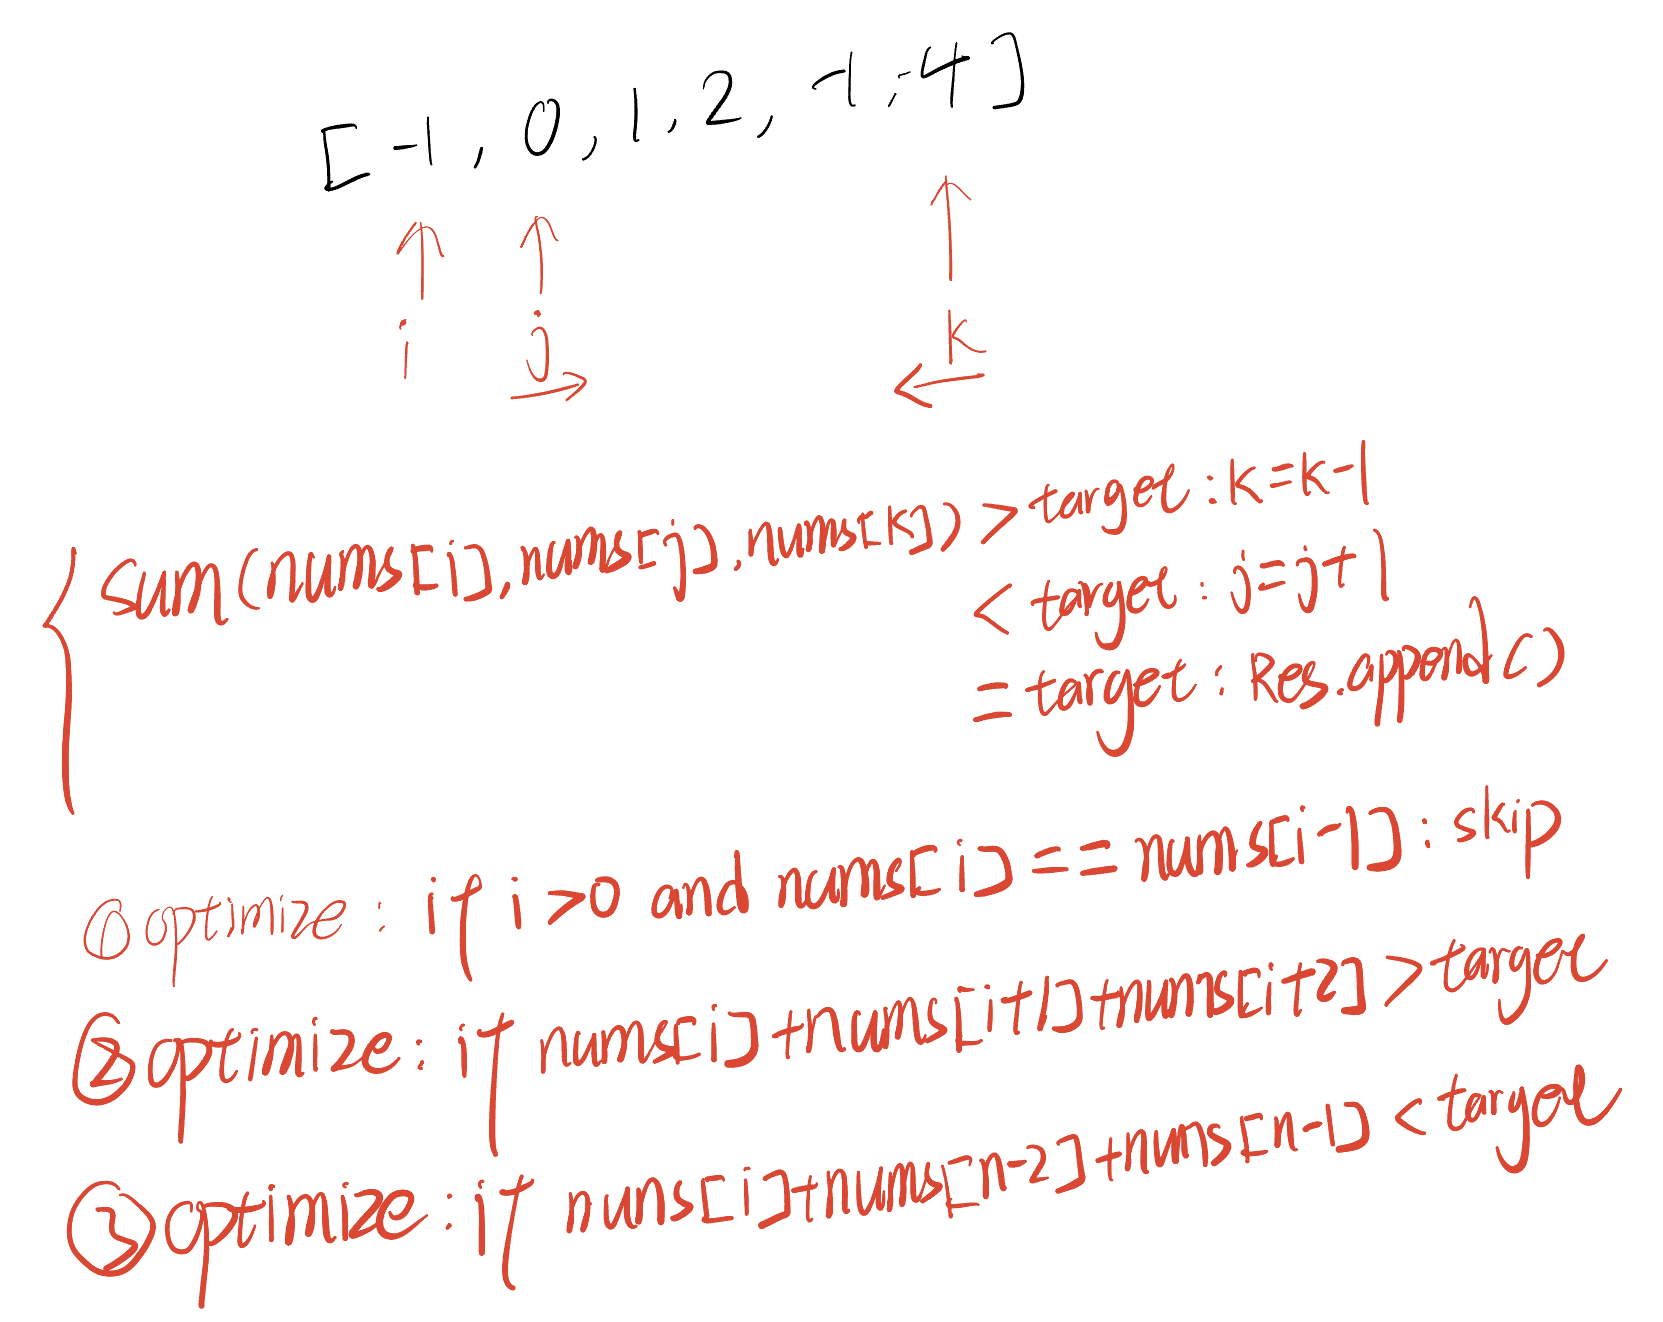 [-1, 0, 1, 2, -1, -4]
i j k
sum(nums[i], nums[j], nums[k]) > target : k=k-1
< target : j=j+1
= target : Res.append()
① optimize : if i>0 and nums[i] == nums[i-1] : skip
② optimize : if nums[i]+nums[i+1]+nums[i+2] > target
③ optimize : if nums[i]+nums[n-2]+nums[n-1] < target